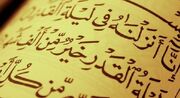 إِنَّا أَنزَلْنَٰهُ فِى لَيْلَةِ ٱلْقَدْرِ
ٱلْقَدْرِ خَيْرٌ مِّنْ أَلْفِ
مِّن كُلِّ